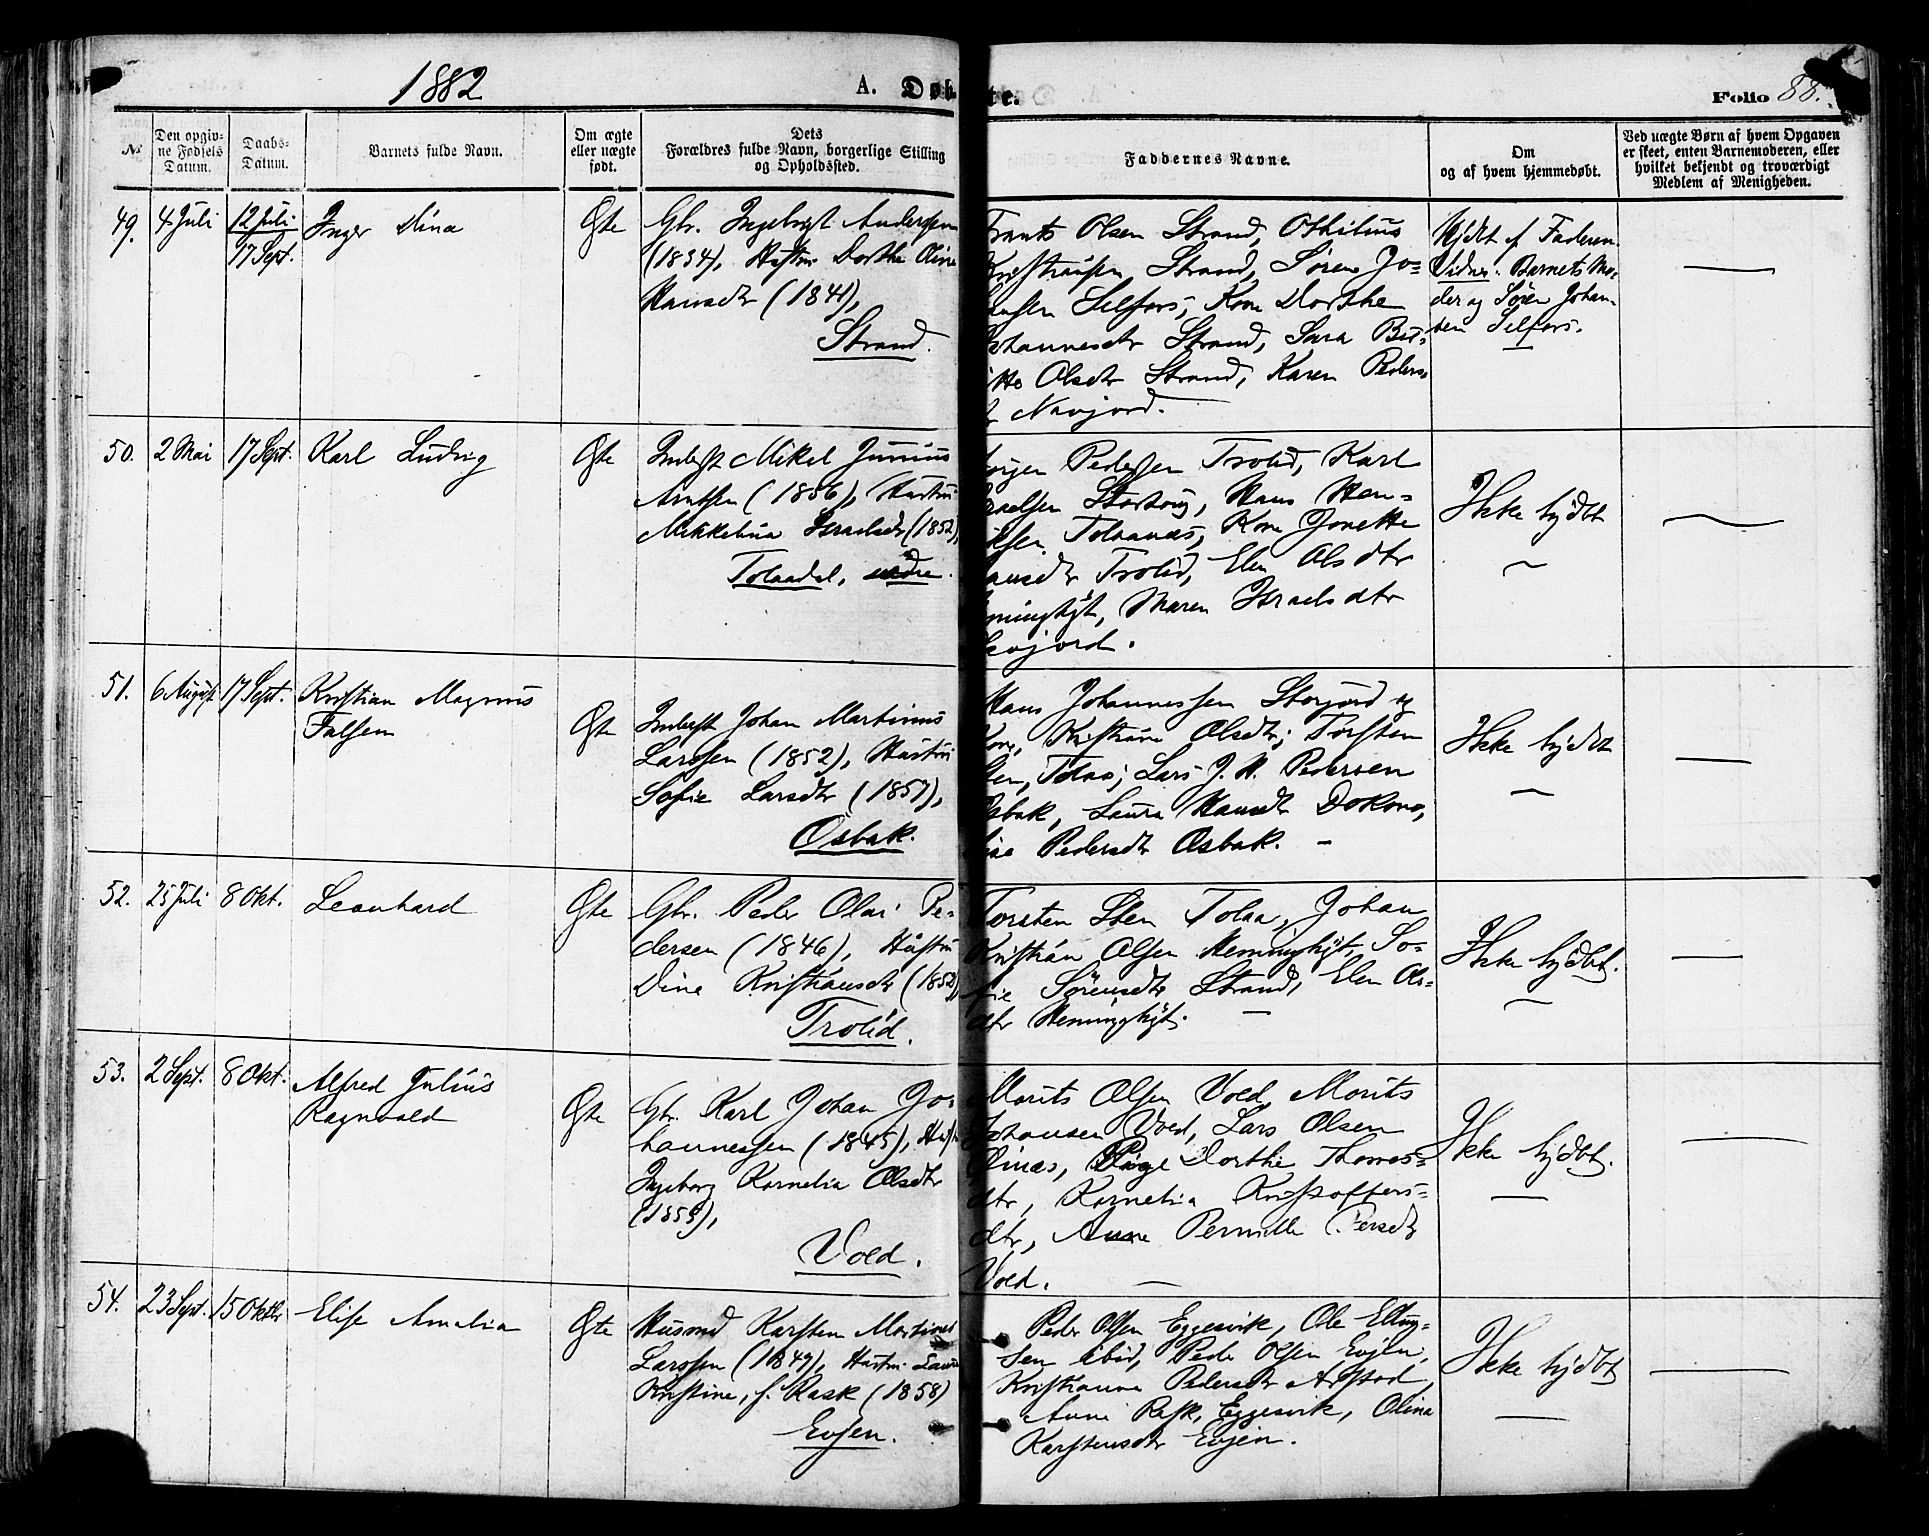 1882
A. Døb
te.
Folio 88.
№
Den opgiv-
ne Fødsels
Datum.
Daabs-
Datum.
Barnets fulde Navn.
Om ægte
eller uægte
født.
Dets
Forældres fulde Navn, borgerlige Stilling
og Opholdssted.
Faddernes Navne.
Om
og af hvem hjemmedøbt.
Ved uægte Børn af hvem Opgaven
er skeet, enten Barnemoderen, eller
hvilket bekjendt og troværdigt
Medlem af Menigheden.
49. 4 Juli 12 Juli Inger Dina Ægte
17 Sept.
Gbr. Ingebrigt Anderssen
(1834), Hustru Dorthe Oline
Hansdtr (1841),
Strand.
Frants Olsen Strand, Othilius
Kristiansen Strand, Søren Jo-
hansen Selfors, Kone Dorthe
Johannesdtr Strand, Sara Ber-
itte Olsdtr Strand, Karen Peders-
Navjord.
Hjdbt af Faderen.
Vidner: Barnets Mo-
der og Søren Johan-
sen Selfors.
50. 2 Mai 17 Sept. Karl Ludvig Ægte
Inderst Mikal Junius
Arntsen (1856), Hustru
Mikkelina Israelsdtr (1852),
Tolaadal, nedre.
Pedersen Trolid, Karl
Storhaug, Hans Hen-
Tolaanæs, Kone Jonette
Trolid, Elen Olsdtr
Maren Israelsdtr
Ikke hjdbt
51. 6 August 17 Sept. Kristian Magnus
Falsen Ægte
Inderst Johan Martinus
Larssen (1852), Hustru
Sofie Larsdtr (1857),
Osbak.
Hans Johannessen Storjord og
Kone, Kristiane Olsdtr; Torsten
Sten, Tolaa; Lars J. H. Pedersen
Osbak, Laura Hansdtr Dokmo,
Pedersdtr Osbak. –
Ikke hjdbt
52. 25 Juli 8 Okt. Leonhard Ægte
Gbr. Peder Olai Pe-
dersen (1846), Hustru
Dina Kristiansdtr (1852),
Trolid.
Torsten Sten Tolaa, Johan
Kristian Olsen Hemminghyt, So-
fie Sørensdtr Strand, Elen Ols-
dtr Hemminghyt. –
Ikke hjdbt.
53. 2 Sept. 8 Okt. Alfred Julius
Ragnvald Ægte
Gbr. Karl Johan Jo-
hannessen (1845), Hustru
Ingeborg Kornelia Olsdtr
(1859),
Vold.
Morits Olsen Vold, Morits
Johansen Vold, Lars Olsen
Pige Dorthe Thomas-
dtr, Kornelia Kristoffers-
dtr, Anne Pernille Persdtr
Vold. –
Ikke hjdbt.
54. 23 Sept. 15 Oktbr Elise Amalia Ægte
Husmd Karsten Martines
Larssen (1849), Hustru Laura
Kristine, f. Rask (1858)
Evjen.
Peder Olsen Eggesvik, Ole Elling-
sen ibid, Peder Olsen Evjen,
Kristianna Pedersdtr Arstad,
Anne Rask, Eggesvik, Olina
Karstensdtr Evjen.
Ikke hjdbt